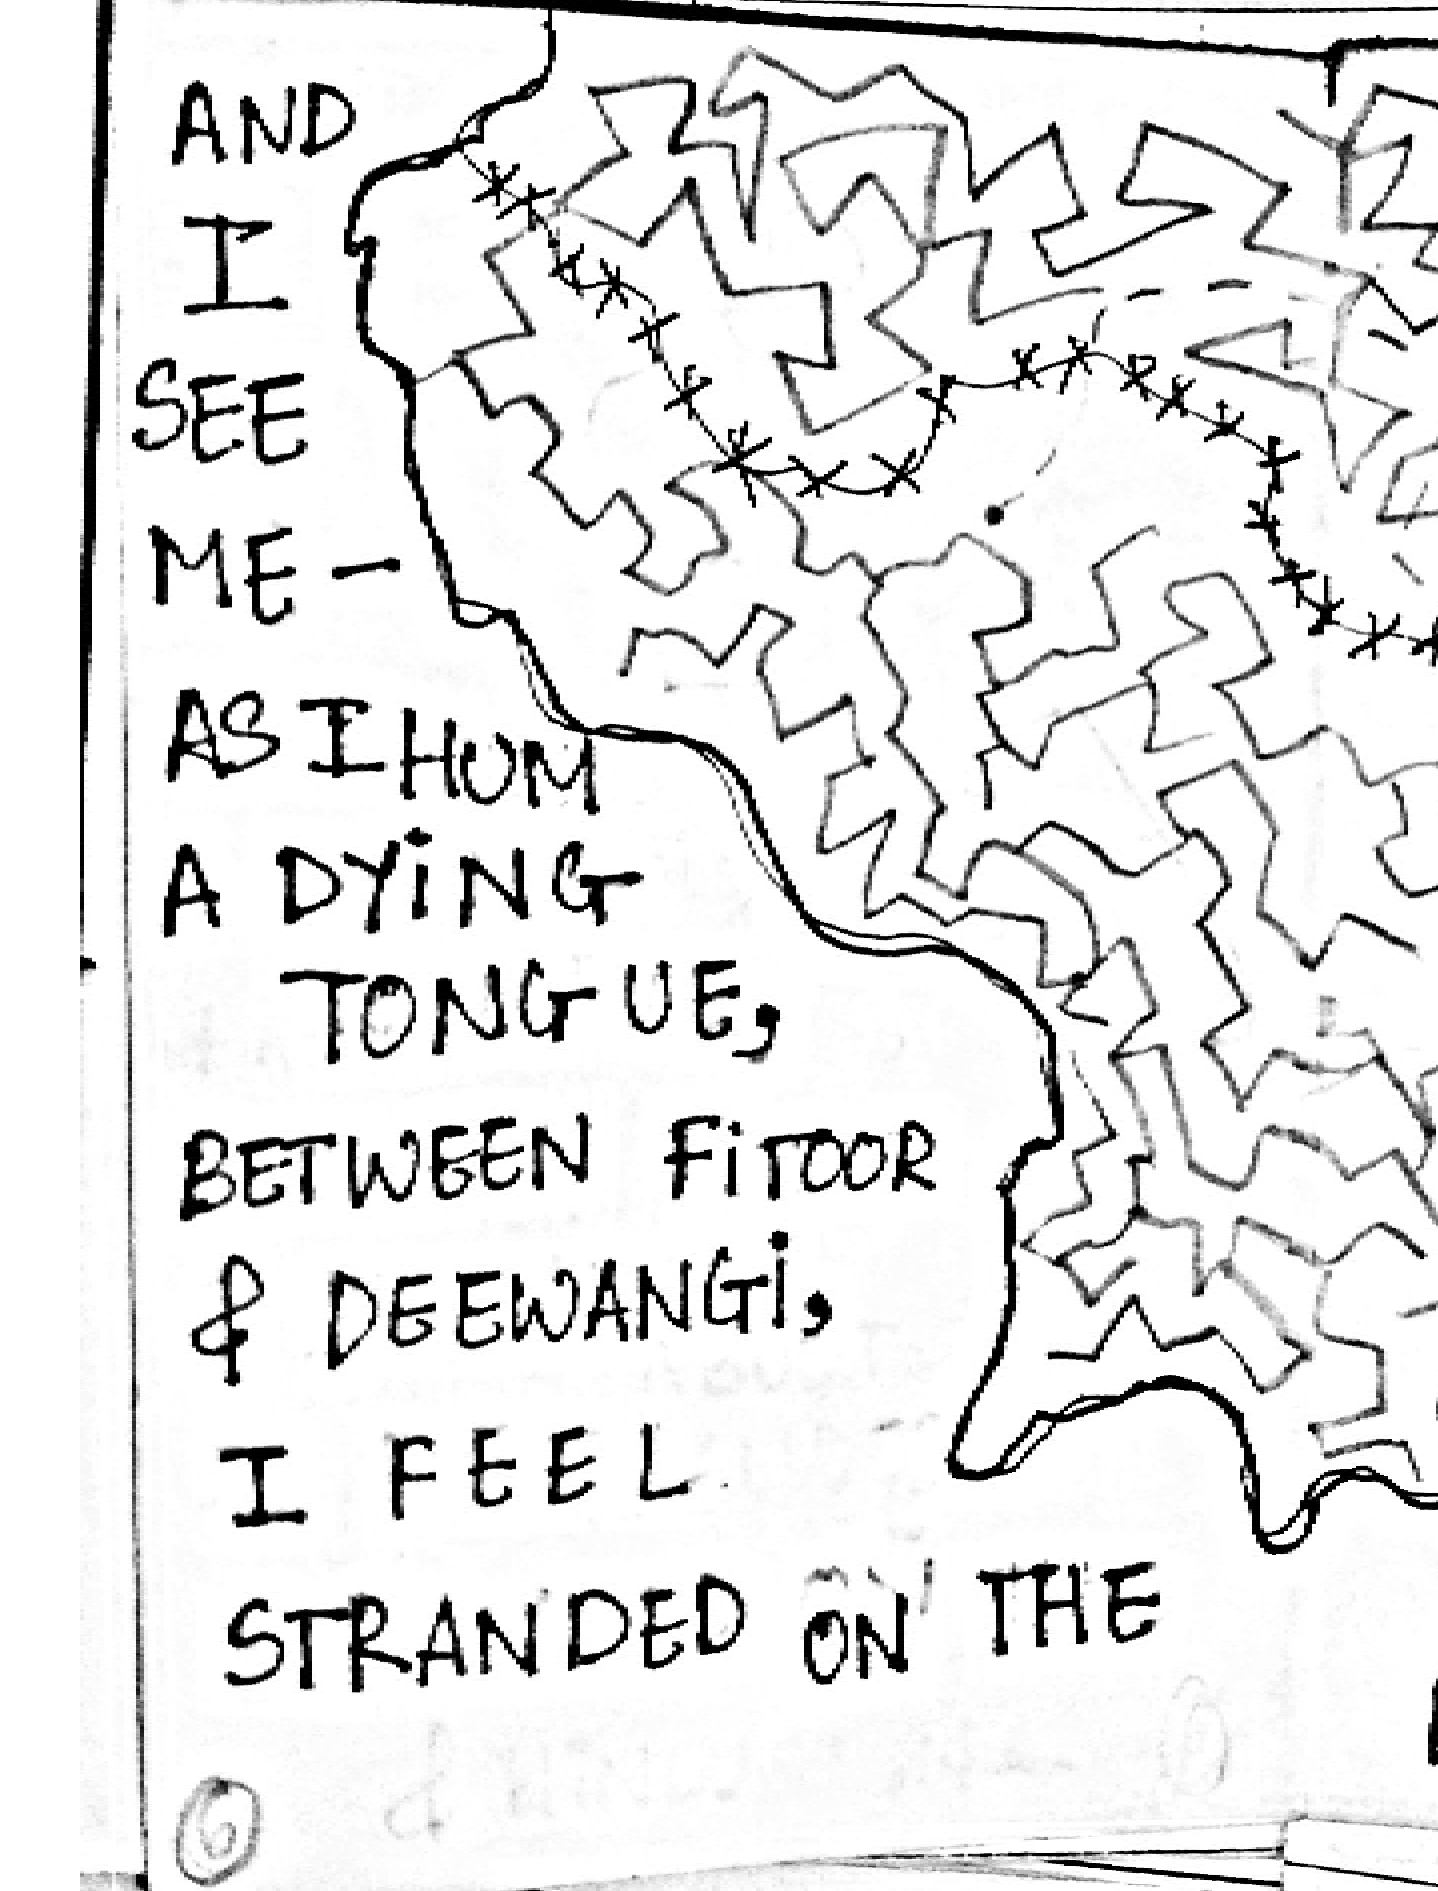 AND
I
SEE
ME —
AS I HUM
A DYiNG
TONGUE,
BETWEEN FiTOOR
& DEEWANGi,
I FEEL
STRANDED ON THE
6